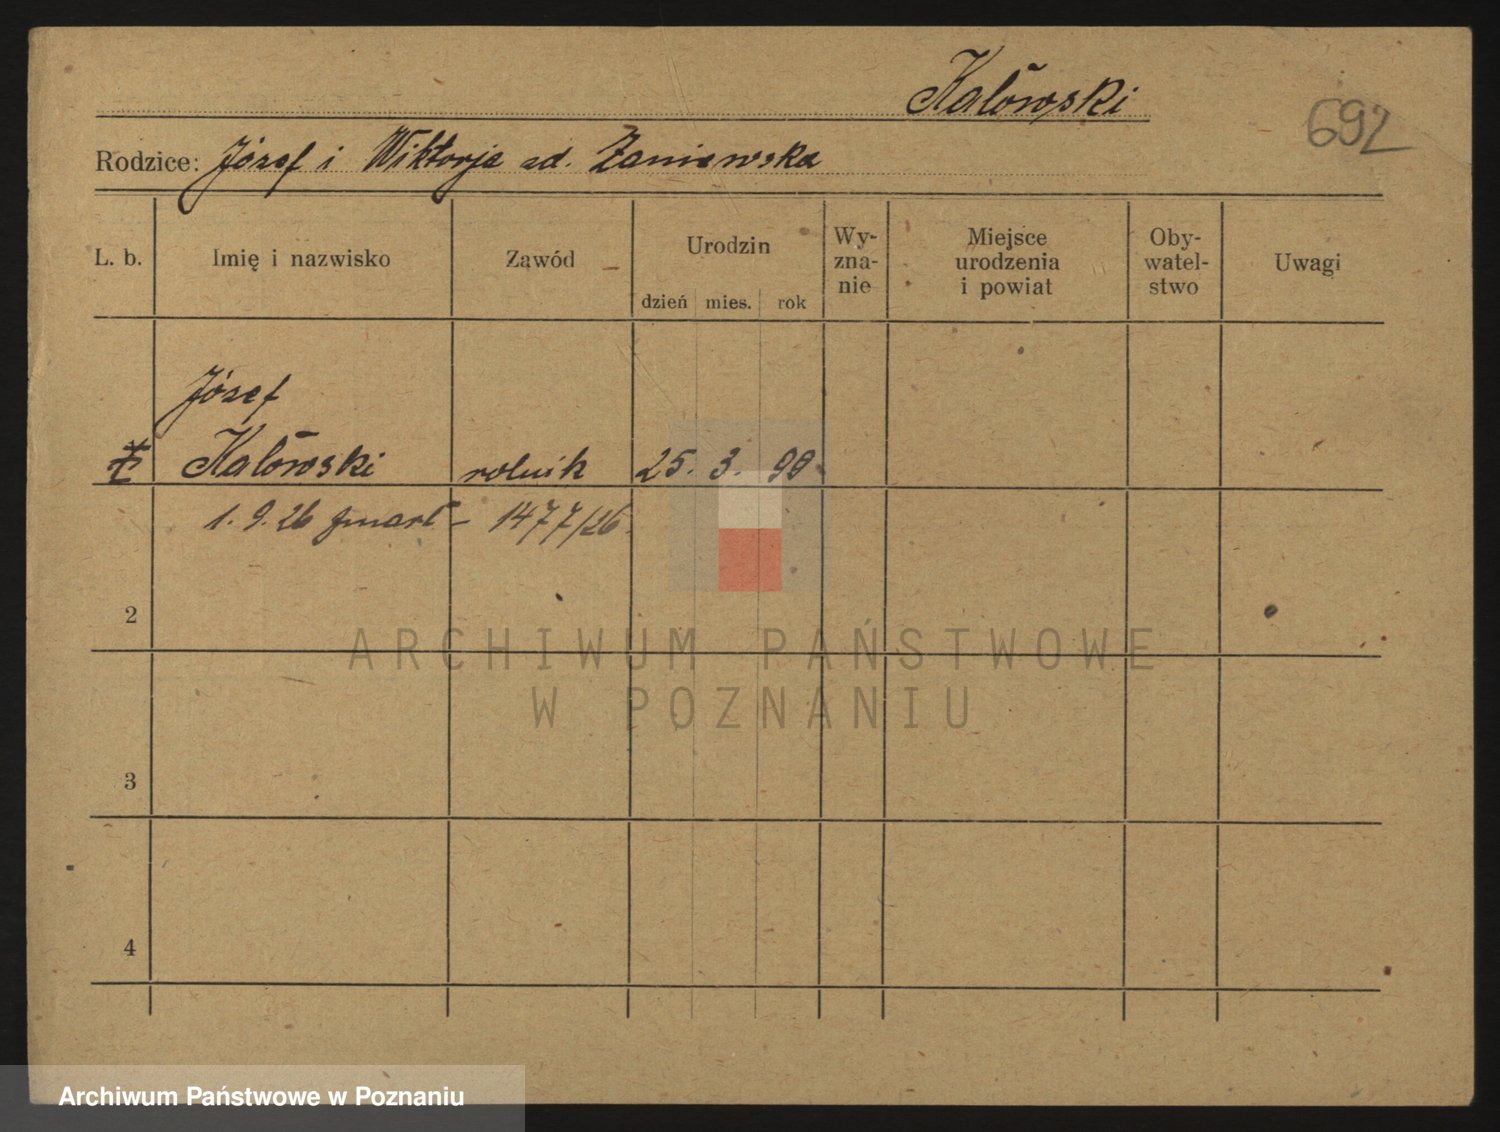 Kalówski
692
Rodzice: Józef i Wiktorja zd. Zaniewska
L. b. Imię i nazwisko Zawód Urodzin dzień mies. rok Wy-zna-nie Miejsce urodzenia i powiat Oby-watel-stwo Uwagi
Józef
Kalówski rolnik 25. 3. 98
1. 9. 26 zmarł – 1477/26
2
ARCHIWUM PAŃSTWOWE
W POZNANIU
3
4
Archiwum Państwowe w Poznaniu